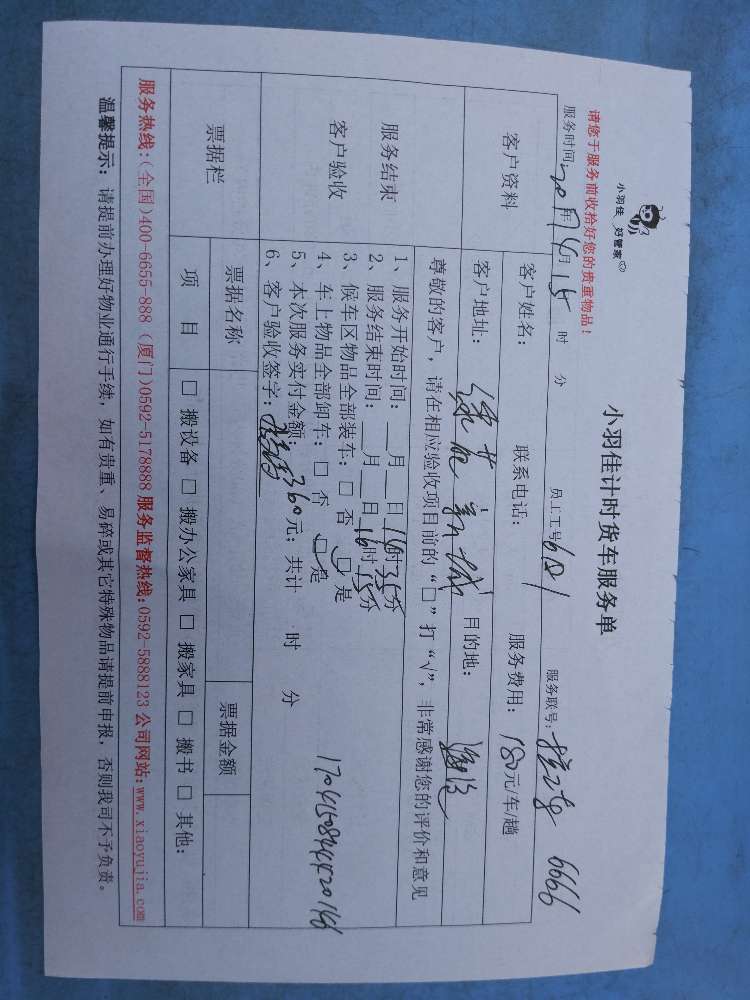 小羽佳 好管家
小羽佳计时货车服务单
请您于服务前收拾好您的贵重物品！
服务时间：2017年4月15 时 分 员工工号 服务联号： 6666
客户资料 客户姓名： 联系电话： 服务费用：180元/车/趟
客户地址： 新城 目的地：
尊敬的客户，请在相应验收项目前的“□”打“√”，非常感谢您的评价和意见
服务结束
客户验收
1、服务开始时间：__月__日14时35分
2、服务结束时间：__月__日16时15分
3、候车区物品全部装车：□ 否 □ 是
4、车上物品全部卸车：□ 否 □ 是
5、本次服务实付金额：360元；共计 时 分
6、客户验收签字：
票据栏 票据名称 票据金额
项 目 □ 搬设备 □ 搬办公家具 □ 搬家具 □ 搬书 □ 其他：
服务热线：（全国）400-6655-888（厦门）0592-5178888 服务监督热线：0592-5888123 公司网站：www.xiaoyujia.com
温馨提示：请提前办理好物业通行手续，如有贵重、易碎或其它特殊物品请提前申报，否则我司不予负责。